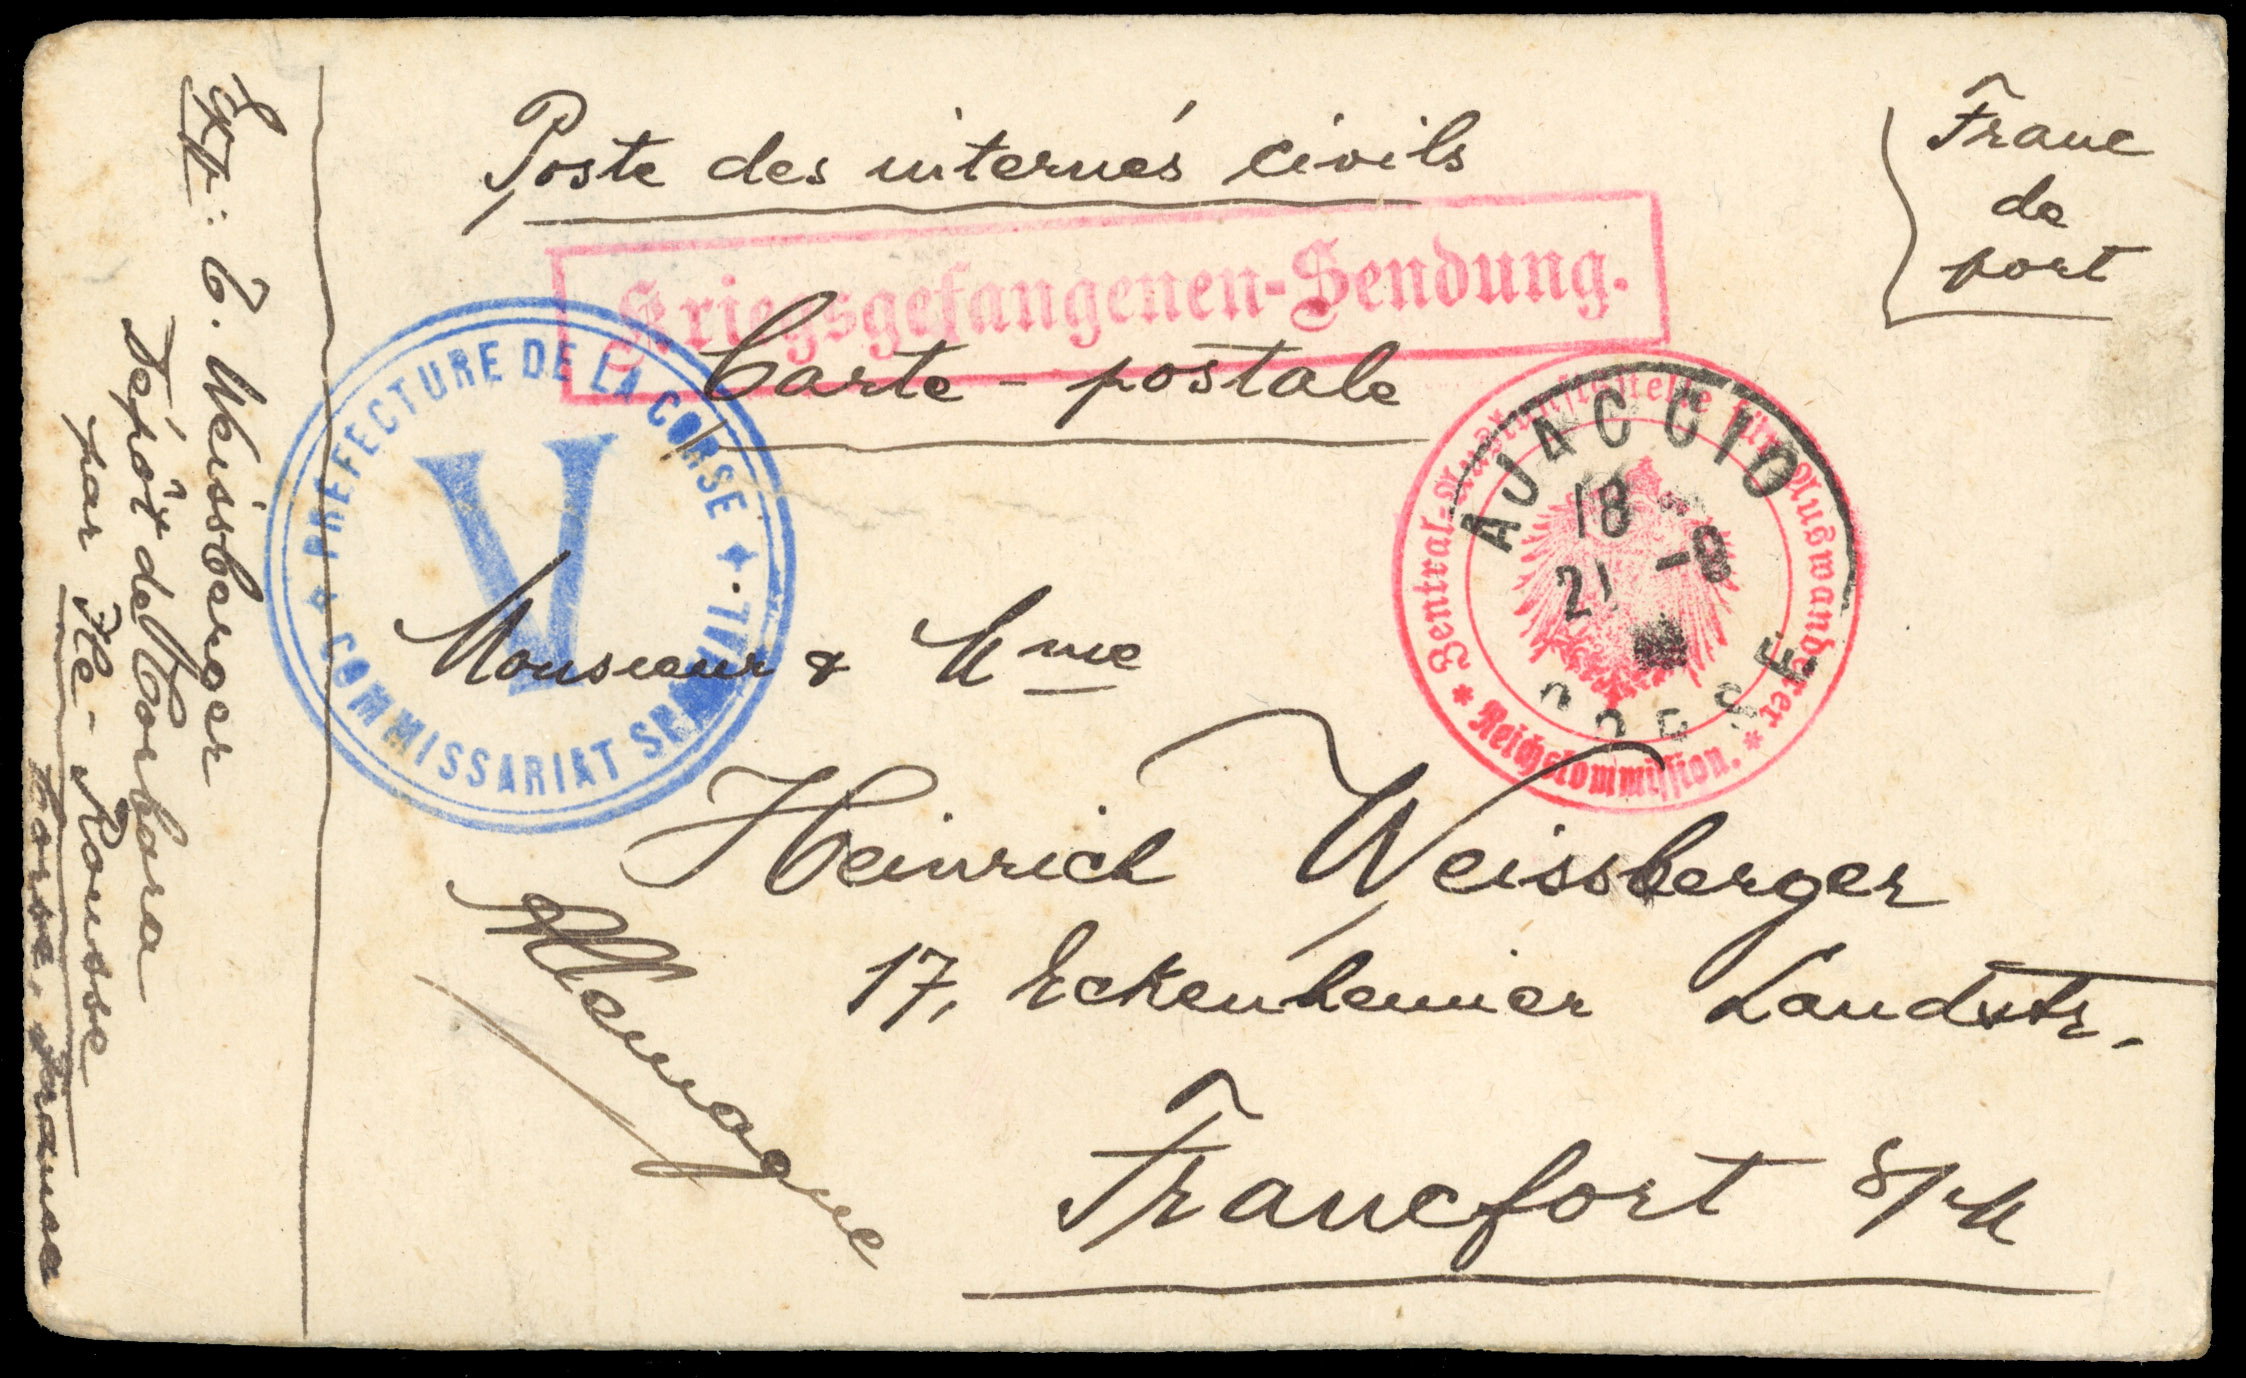 Poste des internés civils
Franc
de
port
Kriegsgefangenen-Sendung.
Carte-postale
PREFECTURE DE LA CORSE
V
COMMISSARIAT SPECIAL.
Zentral-Auskunftstelle für Auswanderer
Reichskommission.
AJACCIO
18
21 -8
CORSE
Monsieur & Mme
Heinrich Weissberger
17, Eckenheimer Landstr.
Francfort s/M
Allemagne
Exp: E. Weissberger
Dépôt de Corbara
par Ile-Rousse
Corse, France